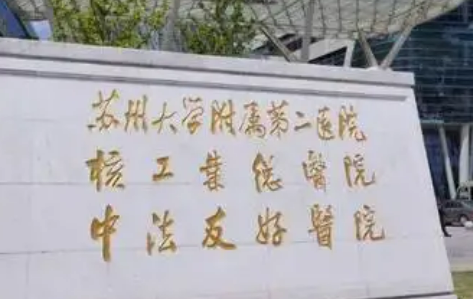 苏州大学附属第二医院
核工業总醫院
中法友好醫院